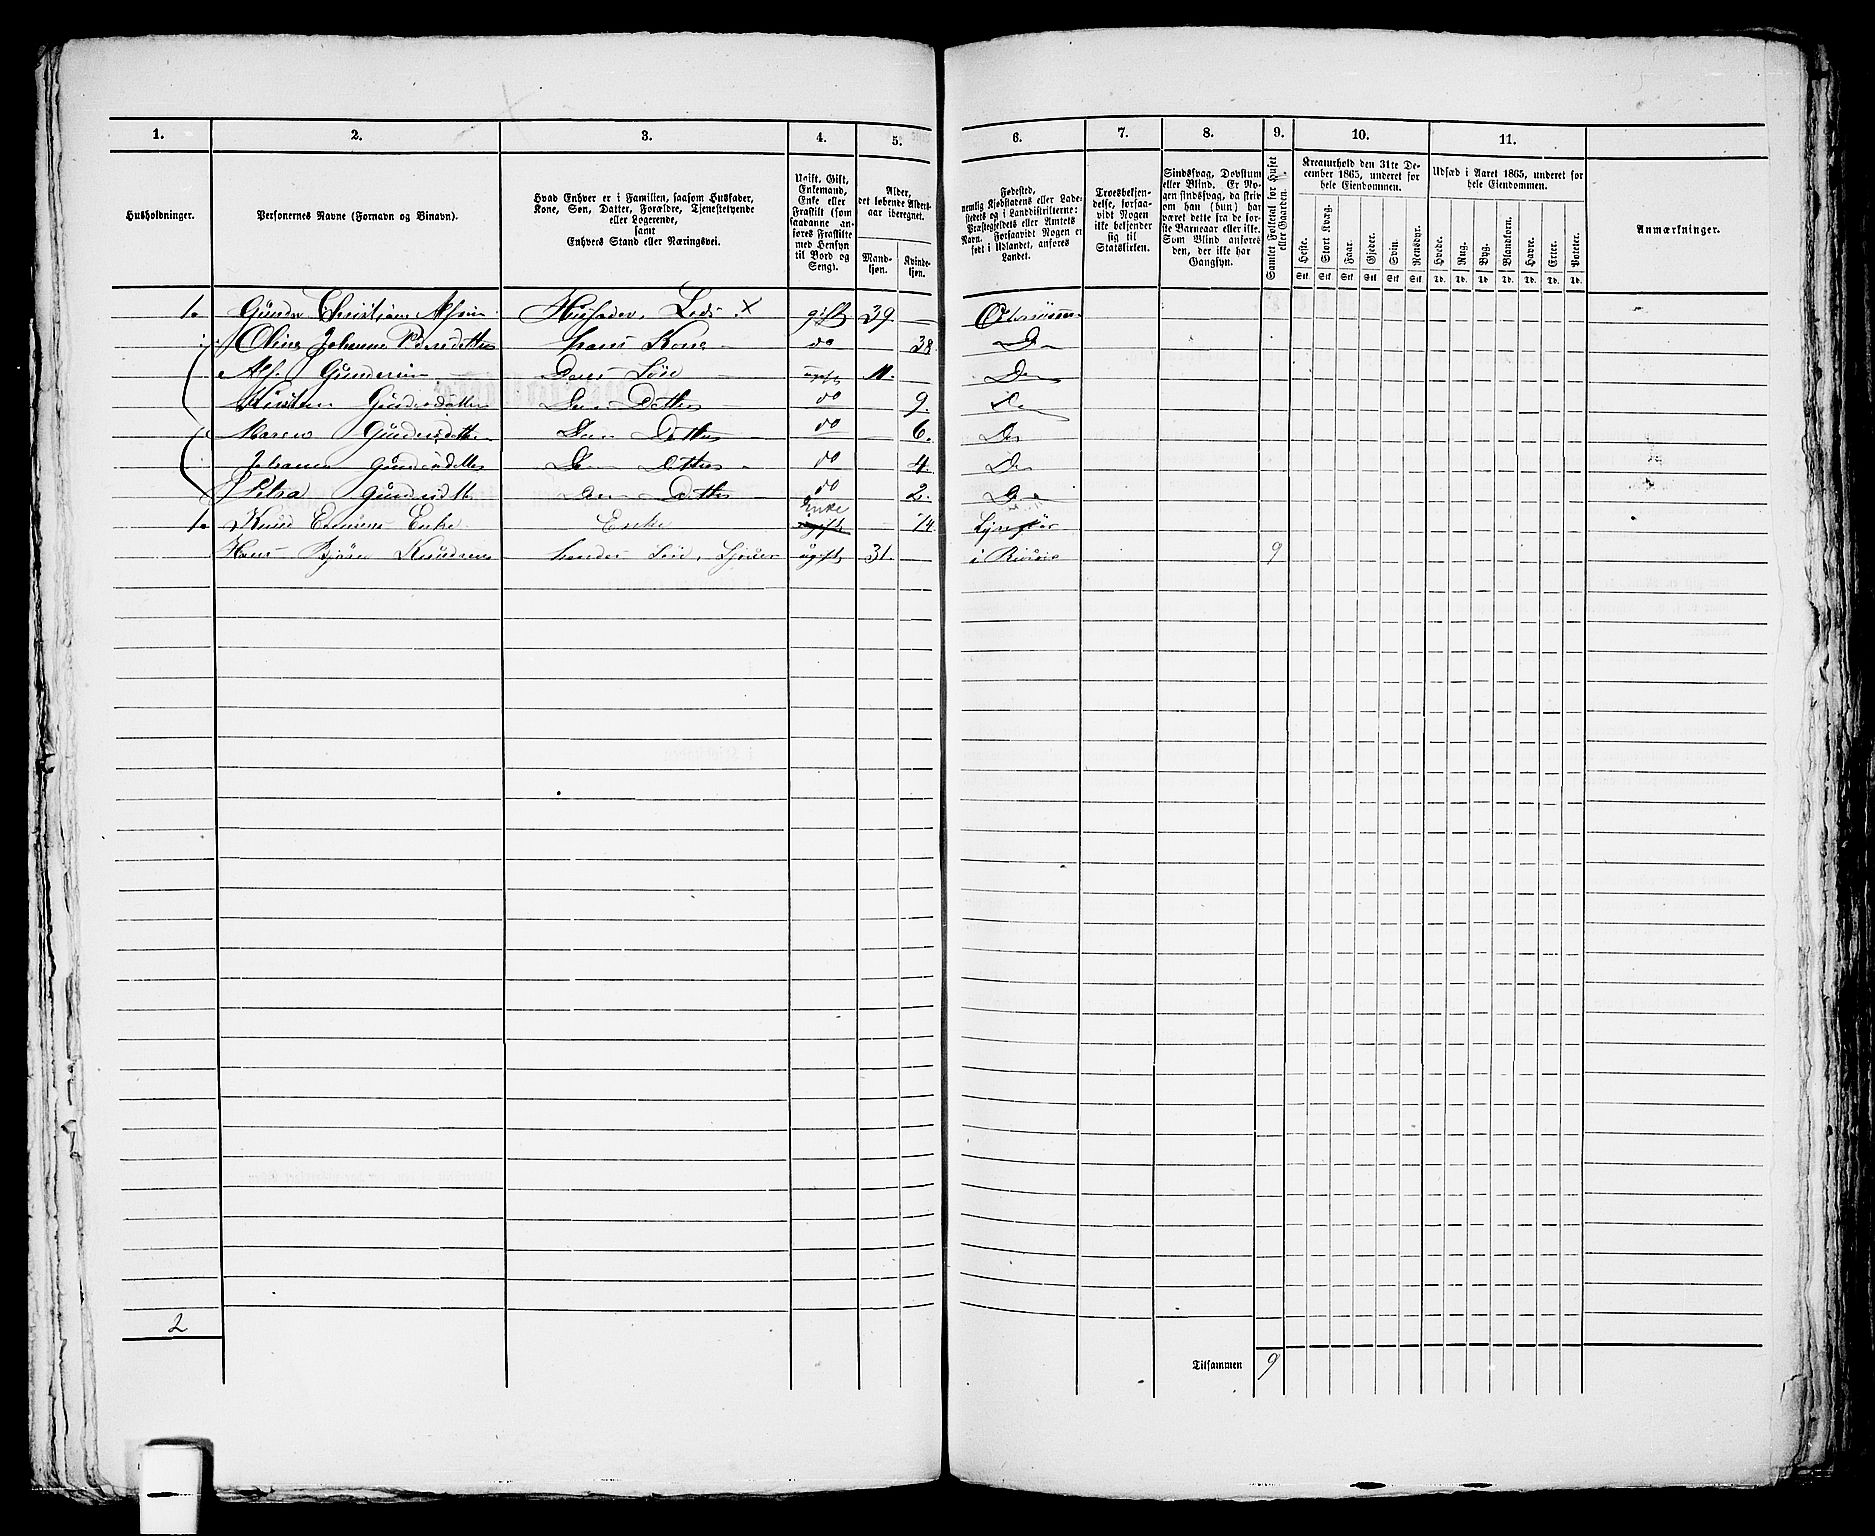 1. 2. 3. 4. 5. 6. 7. 8. 9. 10. 11.
Husholdninger.
Personernes Navne (Fornavn og Binavn).
Hvad Enhver er i Familien, saasom Husfader,
Kone, Søn, Datter, Forældre, Tjenestetyende
eller Logerende,
samt
Enhvers Stand eller Næringsvei.
Ugift, Gift,
Enkemand,
Enke eller
Fraskilt (som
saadanne an-
føres Fraskilte
med Hensyn
til Bord og
Seng).
Alder,
det løbende Alders-
aar iberegnet.
Mand-
kjøn.
Kvinde-
kjøn.
Fødested,
nemlig Kjøbstadens eller Lade-
stedets og i Landdistrikterne:
Præstegjeldets eller Amtets
Navn. Forsaavidt Nogen er
født i Udlandet, anføres
Landet.
Troesbekjen-
delse, forsaa-
vidt Nogen
ikke bekjender
sig til
Statskirken.
Sindssvag, Døvstum
eller Blind. Er No-
gen sindssvag, da skriv
om han (hun) har
været dette fra de før-
ste Barneaar eller ikke.
Som Blind anføres
den, der ikke har
Gangsyn.
Samlet Folketal for Huset
eller Gaarden.
Kreaturhold den 31te De-
cember 1865, underet for
hele Eiendommen.
Heste. Stort Kvæg. Faar. Gjeder. Svin. Rensdyr.
Stk. Stk. Stk. Stk. Stk. Stk.
Udsæd i Aaret 1865, underet for
hele Eiendommen.
Hvede. Rug. Byg. Blandkorn. Havre. Erter. Poteter.
Td. Td. Td. Td. Td. Td. Td.
Anmærkninger.
1. Gunder Christian Husfader, Lods X gift 39
Oline Johanne Pedersdatter hans Kone do 38 Do
Alf Gundersen Deres Søn ugift 11. Do
Kirsten Gundersdatter Do Datter do 9. Do
Maren Gundersdatter Do Datter do 6. Do
Johanne Gundersdatter Do Datter do 4. Do
Petra Gundersdt Do Datter do 2. Do
1. Knud Enke Enke Enke 74 Lyngør
Hans Bjørn Knudsen hendes Søn, ugift 31. i 9
2
Tilsammen 9